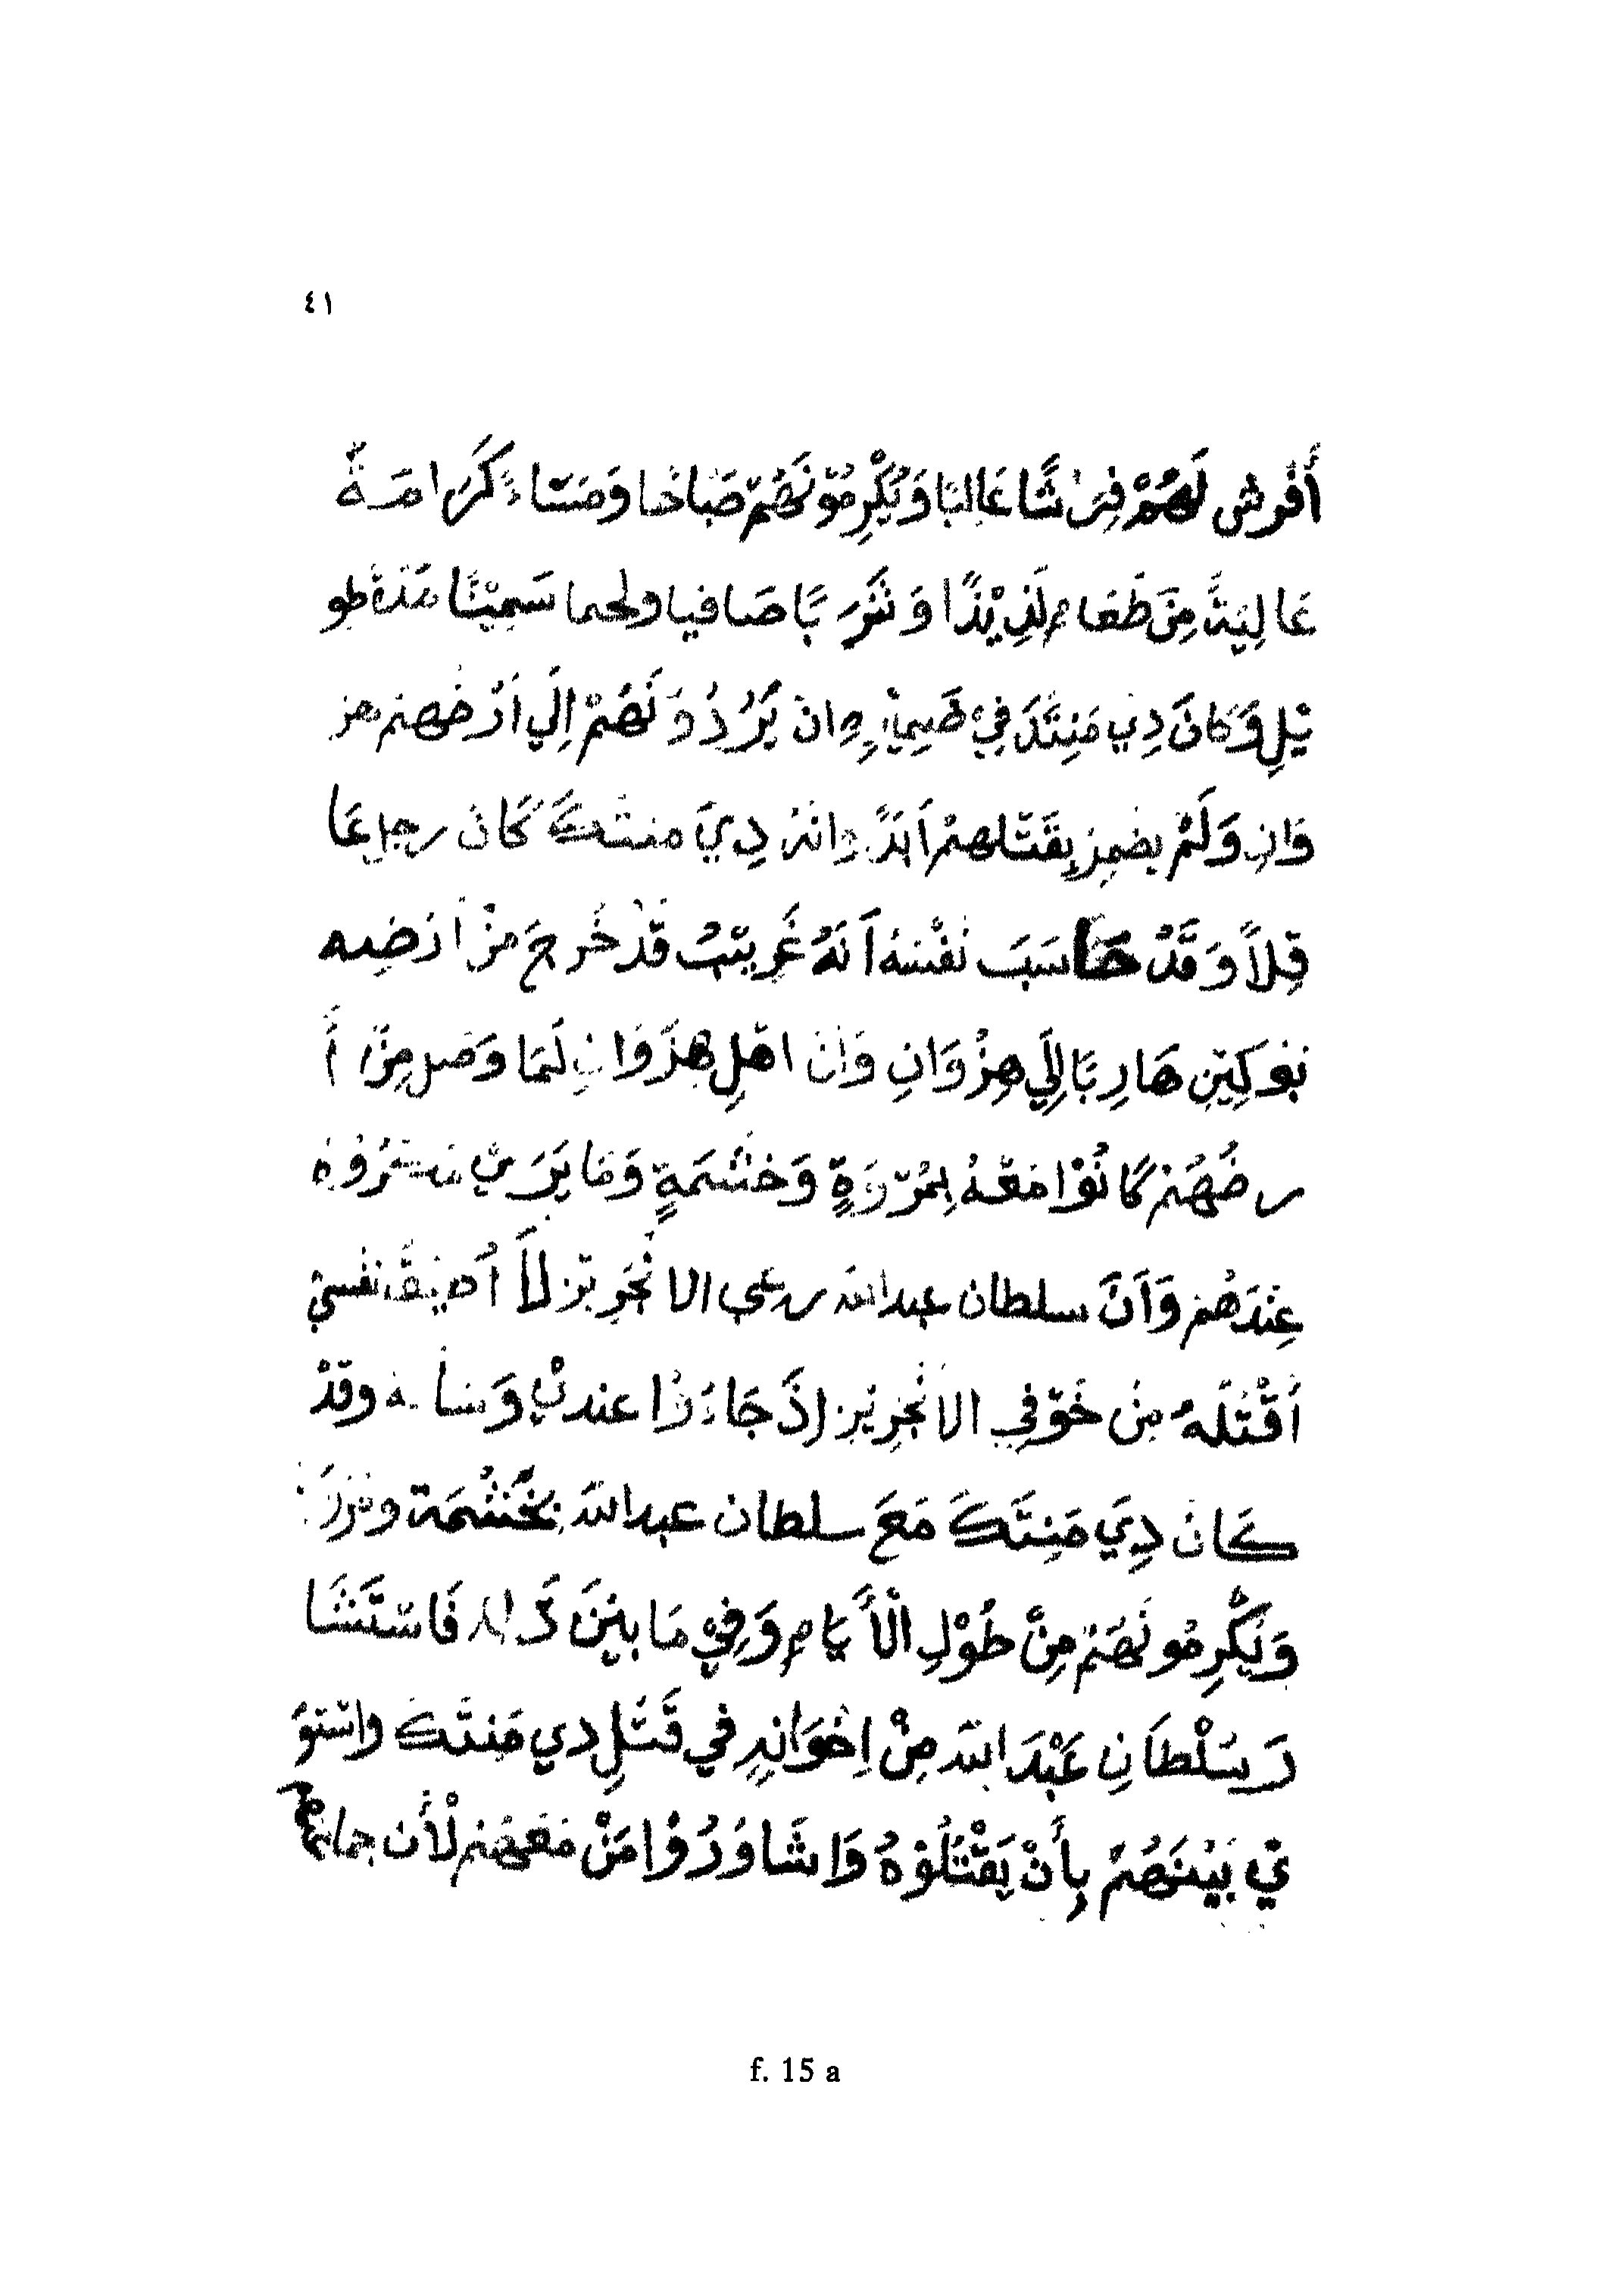 ٤١
أَفْرش لَهُمْ فِرَاشًا غَالِبًا وَيُكْرِمُوْنَهُمْ صَبَاحًا وَمَسَاءً كَرَامَةً
غَالِيَةً مِنْ طَعَامٍ لَذِيْذًا وَشَرَبًا صَافيا ولحما سَمِيْنًا مُدَّةً طو
يْلِ وَكَانَ دِي مَنِتَكَ فِيْ ضَمِيْرِهِ ان يَرُدُوْنَهُمْ اِلَي اَرْضهم هز
وَانِ وَلَمْ يضمِرْ بِقَتْلهمْ اَبَدًا وانهُ دِيَ منتكَ كَانَ رجل عَا
قِلاً وَقَدْ حَاسَبَ نَفْسَهُ اَنَهُ غَرِيْبُ قَدْ خَرجَ مِنْ اَرْضِه
بُوكِيْنِ هَارِبًا اِلَي هِزْوَانِ وَانَ اهْلِ هِزْوَانِ لَمَا وَصَل مِنْ أَ
رضهُمْ كَانُوْا مَعَهُ بِمُرُوَةٍ وَحَشْمَةٍ وَمَا يَرَي
عِنْدَهُمْ وَاَنَّ سلطان عبدالله رعي الانْجَرِيْز لَا أُضِيْقُ نَفْسِيْ
أَقْتُلَهُ مِنْ خَوْفِي الانْجِرِيْز إِذْ جَاءُوْا عندي وقدْ
كَانَ دِيَ مَنِتَكَ مَعَ سلطان عبدالله بِحَشْمَة
وَيُكْرِمُونَهُمْ مِنْ طُوْلِ الْأَيَامِ وَفِيْ مَا بَيْنَ ذَالك فَاسْتَشَا
رَ سُلْطَانِ عَبْدَ الله مِنْ اِخْوَانِهِ في قَتْلِ دي مَنتَكَ واسْتوَ
يْ بَيْنَهُمْ بِأَنْ يَقْتُلُوْهُ وَاشَاوَرُوْا مَنْ مَعَهُمْ لْأَن
f. 15 a